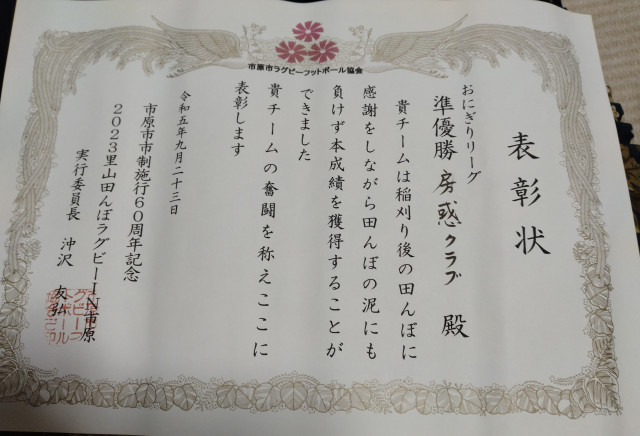 市原市ラグビーフットボール協会
表彰状
おにぎりリーグ
準優勝 房惑クラブ 殿
貴チームは稲刈り後の田んぼに
感謝をしながら田んぼの泥にも
負けず本成績を獲得することが
できました
貴チームの奮闘を称えここに
表彰します
令和五年九月二十三日
市原市市制施行60周年記念
2023里山田んぼラグビーIN市原
実行委員長 沖沢 友弘